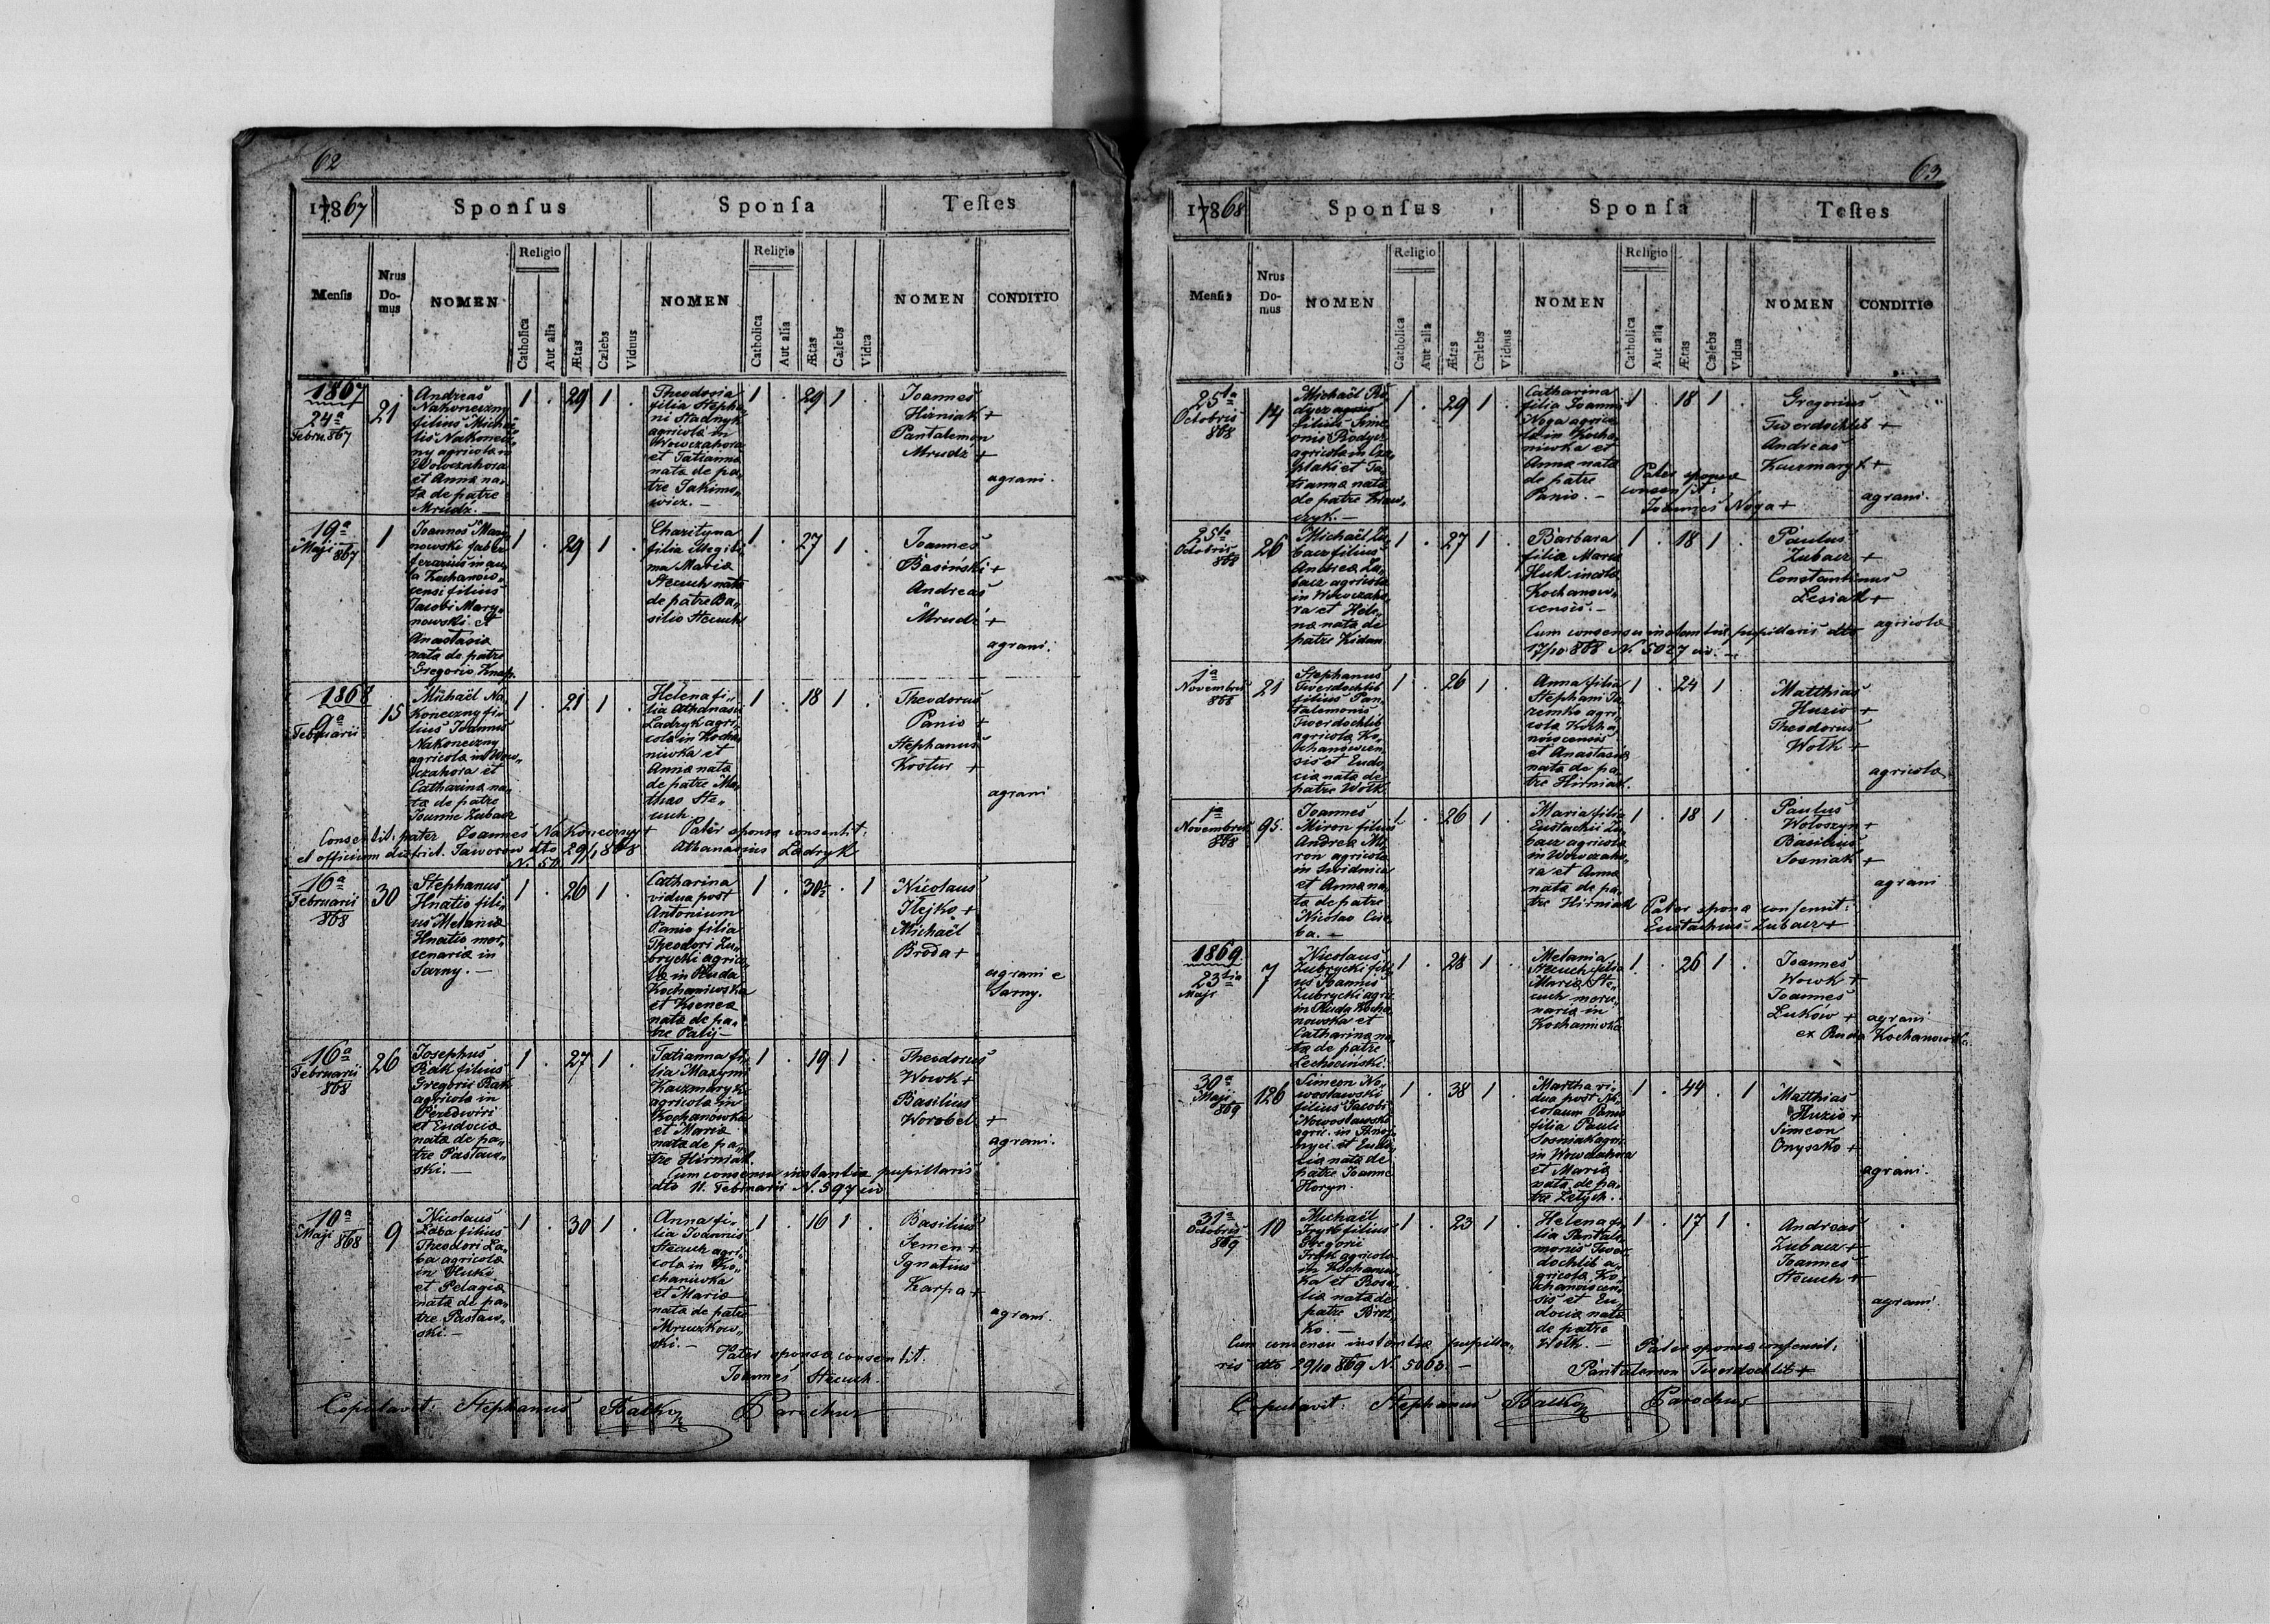 62
17867
Sponsus
Sponsa
Testes
Mensis
Nrus Domus
NOMEN
Religio
Catholica
Aut alia
Ætas
Cælebs
Viduus
NOMEN
Religio
Catholica
Aut alia
Ætas
Cælebs
Vidua
NOMEN
CONDITIO
1867
24a
Febru. 867
21
Andreas
Nakoneczny
filius Micha
lis Nakonecz
ny agricola in
Wowczahora
et Anna na
ta de patre
Mrudz. —
1 . 29 1 .
Theodosia
filia Stepha
ni Hadnyk
agricola in
Wowczahora
et Tatianna
nata de pa
tre Jakimo
wicz. —
1 . 29 1 .
Joannes
Hirniak +
Pantalemon
Mrudz +
agrani.
19a
Maji 867
1
Joannes Mary
nowski faber
ferarius in au
la Kochanow
censi filius
Jacobi Mary
nowski et
Anastasia
nata de patre
Gregorio Knap.
1 . 29 1 .
Charityna
filia illegiti
ma Maria
Stecuch nata
de patre Ba
silio Stecuch
1 . 27 1 .
Joannes
Basiński +
Andreas
Mrudz +
agrani.
1868
9a
Februarii
15
Michaël Na
koneczny fi
lius Joannis
Nakoneczny
agricola in Wow
czahora et
Catharina na
ta de patre
Joanne Zubacz
1 . 21 1 .
Helena fi
lia Athanasii
Ladryk agri
cola in Kocha
niwka et
Anna nata
de patre Ma
theo Ste
cuch
1 . 18 1 .
Theodorus
Panio +
Stephanus
Kostur +
agrani
Consentit: pater Joannes Nakoneczny +
et officium district. Jaworow dto 29/1 868
N. 50
Pater sponsa consentit:
Athanasius Ladryk
16a
Februarii
868
30
Stephanus
Hnatio fili
us Melania
Hnatio mer
cenaria in
Sarny. —
1 . 26 1 .
Catharina
vidua post
Antonium
Panio filia
Theodori Zu
brycki agrico
la in Ruda
Kochaniwska
et Ksenea
nata de pa
tre Palij —
1 . 30 . 1
Nicolaus
Ilejko +
Michaël
Broda +
agrani e
Sarny.
16a
Februarii
868
26
Josephus
Bak filius
Gregorii Bak
agricola in
Peredwiri
et Eudocia
nata de pa
tre Pastaw
ski. —
1 . 27 1 .
Tatianna fi
lia Maxymi
Kaczmaryk
agricola in
Kochanowka
et Maria
nata de pa
tre Hirniak.
1 . 19 1 .
Theodorus
Wowk +
Basilius
Worobel +
agrani.
Cum consensu instantia pupillaris
dto 11. Februarii N. 597 civ
10a
Maji 868
9
Nicolaus
Laba filius
Theodori La
ba agricola
in Huki
et Pelagia
nata de pa
tre Pastaw
ski. —
1 . 30 1 .
Anna fi
lia Joannis
Stecuch agri
cola in Ko
chaniwka
et Maria
nata de patre
Mruczkow
ski. —
1 . 16 1 .
Basilius
Semen +
Ignatius
Karpa +
agrani.
Pater sponsa consentit.
Joannes Stecuch
Copulavit: Stephanus Balko Parochus
63
17868
Sponsus
Sponsa
Testes
Mensis
Nrus Domus
NOMEN
Religio
Catholica
Aut alia
Ætas
Cælebs
Viduus
NOMEN
Religio
Catholica
Aut alia
Ætas
Cælebs
Vidua
NOMEN
CONDITIO
25ta
Octobris
868
14
Michaël Ro
dycz
filius Sime
onis Rodycz
agricola in Cza
plaki et Ta
tianna nata
de patre Kraw
czyk. —
1 . 29 1 .
Catharina
filia Joannis
Noga agrico
la in Kocha
niwka et
Anna nata
de patre
Panio. —
1 . 18 1 .
Gregorius
Twerdochlib +
Andreas
Kaczmaryk +
agrani.
Pater sponsa
consensit:
Joannes Noga +
25ta
Octobris
868
26
Michaël Zu
bacz filius
Andrea Zu
bacz agricola
in Wowczaho
ra et Hele
na nata de
patre Kidan
1 . 27 1 .
Barbara
filia Marci
Huk incola
Kochanow
censis. —
1 . 18 1 .
Paulus
Zubacz +
Constantinus
Lesiak +
agricola
Cum consensu instantia pupillaris dto
17/10 868 N. 5027 civ. —
1a
Novembris
868
21
Stephanus
Twerdochlib
filius Pan
talemonis
Twerdochlib
agricola Ko
chanowcen
sis et Eudo
cia nata de
patre Wolk
1 . 26 1 .
Anna filia
Stephani Ja
remko agri
cola Kocha
nowcensis
et Anastasia
nata de pa
tre Hirniak.
1 . 24 1 .
Matthias
Huzio +
Theodorus
Wolk +
agricola
1a
Novembris
868
95.
Joannes
Miron filius
Andrea Mi
ron agricola
in Swidnica
et Anna na
ta de patre
Nicolao
1 . 26 1 .
Maria filia
Eustachii Zu
bacz agricola
in Wowczaho
ra et Anna
nata de pa
tre Hirniak
1 . 18 1 .
Paulus
Woloszyn +
Basilius
Sosniak +
agrani
Pater sponsa consensit:
Eustachius Zubacz +
1869
23tia
Maji
7
Nicolaus
Zubrycki fili
us Joannis
Zubrycki agric
in Ruda Kocha
nowska et
Catharina na
ta de patre
Lechociński.
1 . 28 1 .
Melania
Stecuch filia
Maria Ste
cuch merce
naria in
Kochaniwka
1 . 26 1 .
Joannes
Wowk +
Joannes
Luków + agrani
ex Ruda Kochanowska.
30a
Maji
869
126
Simeon No
wosławski
filius Jacobi
Nowosławski
agric. in
et Eudo
cia nata de
patre Joanne
Horyn.
1 . 38 1 .
Martha vi
dua post Ni
colaum Panio
filia Pauli
Sosniak agri
in Wowczahora
et Maria
nata de pa
tre Letych.
1 . 44 . 1
Matthias
Huzio +
Simeon
Onyszko +
agrani.
31a
Octobris
869
10
Michaël
Fryk filius
Gregorii
Fryk agricola
in Kochaniw
ka et Rosa
lia nata de
patre
ko. —
1 . 23 1 .
Helena fi
lia Pantale
monis Twer
dochlib a
gricola Ko
chanowcen
sis et Eu
docia nata
de patre
Wolk. —
1 . 17 1 .
Andreas
Zubacz +
Joannes
Stecuch +
agrani.
Cum consensu instantia pupilla
ris dto 29/10 869 N. 5063. —
Pater sponsa consensit.
Pantalemon Twerdochlib +
Copulavit: Stephanus Balko Parochus